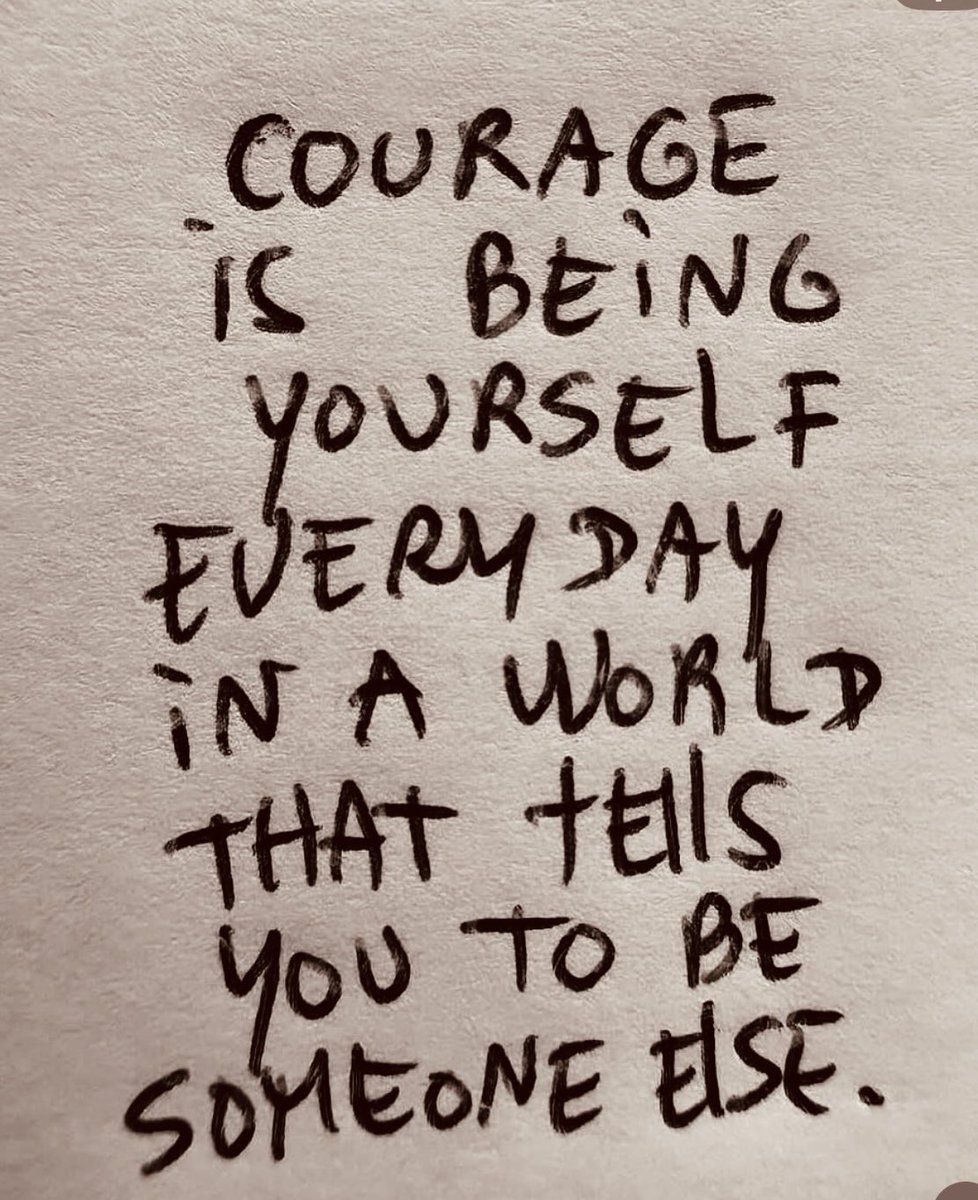 COURAGE
iS BEiNG
YOURSELF
EVERY DAY
iN A WORLD
THAT tEllS
YOU TO BE
SOMEONE ElSE.